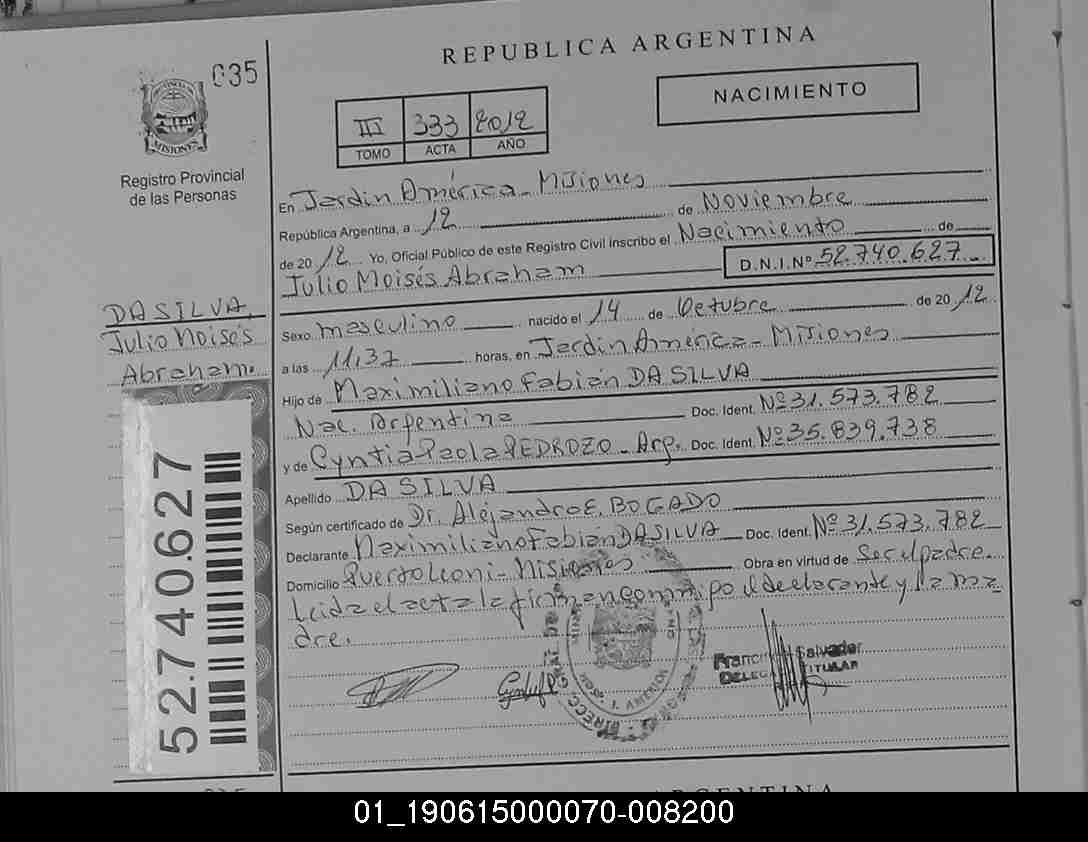 REPUBLICA ARGENTINA
035
NACIMIENTO
III 333 2012
TOMO ACTA AÑO
MISIONES
Registro Provincial
de las Personas
En Jardín América - Misiones
República Argentina, a 12 de Noviembre
de 2012 Yo, Oficial Público de este Registro Civil inscribo el Nacimiento de
Julio Moisés Abraham D.N.I.Nº 52.740.627
DA SILVA,
Julio Moisés
Abraham.
Sexo masculino nacido el 14 de Octubre de 2012
a las 11,37 horas, en Jardín América - Misiones
Hijo de Maximiliano Fabián DA SILVA
Nac. Argentina Doc. Ident. Nº 31.573.782
y de Cyntia Paola PEDROZO - Arg. Doc. Ident. Nº 35.839.738
Apellido DA SILVA
Según certificado de Dr. Alejandro E. BOGADO
Declarante Maximiliano Fabián DA SILVA Doc. Ident. Nº 31.573.782
Domicilio Puerto Leoni - Misiones Obra en virtud de Ser el padre.
Leida el acta la firman conmigo el declarante y la ma
dre.
52.740.627
Salvador
TITULAR
J. AMERICA
01_190615000070-008200